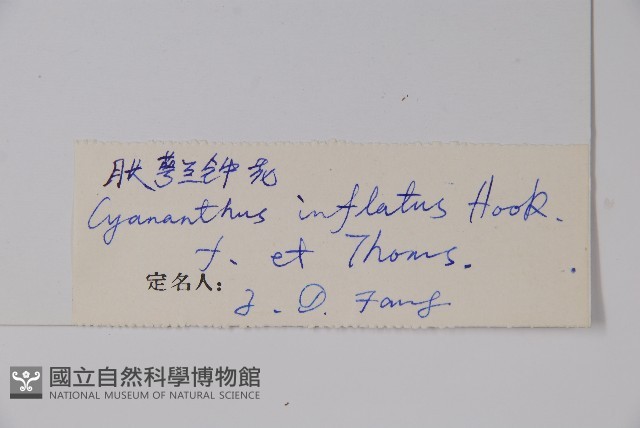 胀萼蓝钟花
Cyananthus inflatus Hook.
f. et Thoms.
定名人:
D. Fang
國立自然科學博物館
NATIONAL MUSEUM OF NATURAL SCIENCE